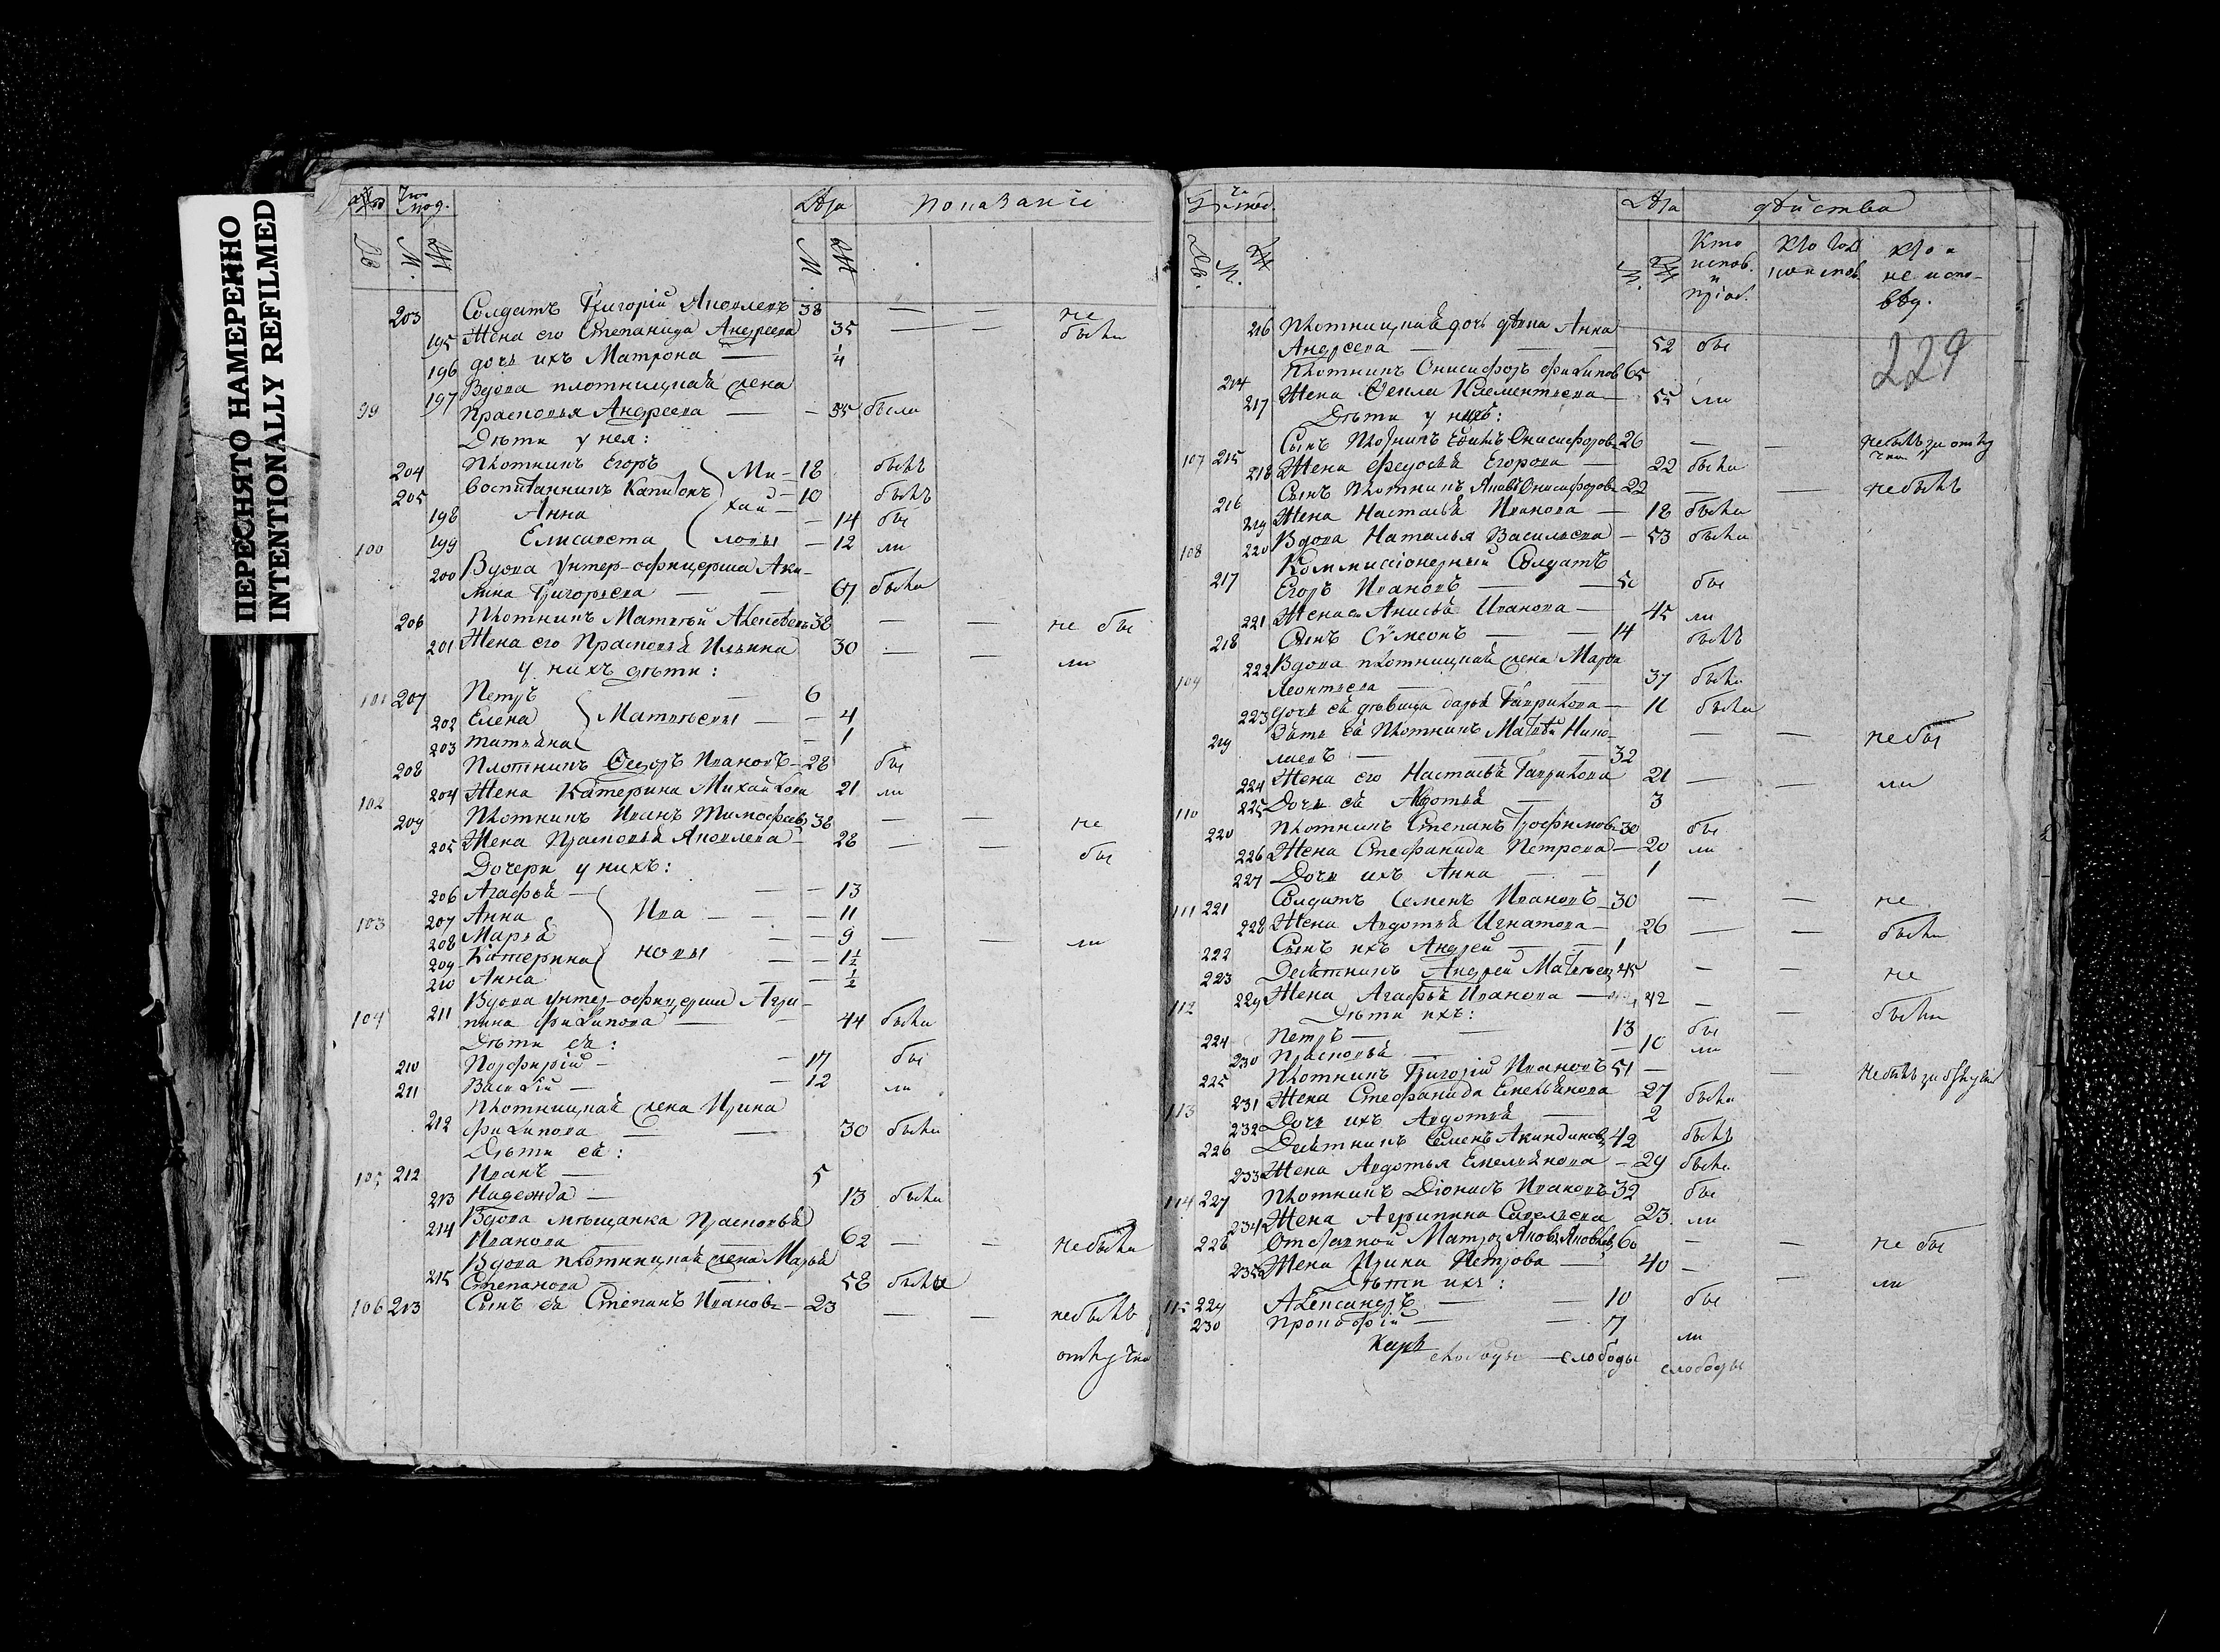 ПЕРЕСНЯТО НАМЕРЕННО
INTENTIONALLY REFILMED
Лѣта показаніе
М.
203 Солдатъ Григорій Яковлевъ 38 — — не
195 Жена его Степанида Андреева 35 — — были
196 дочь ихъ Матрона — 1/4
197 Вдова плотницкая жена
99 Прасковья Андреева — — 35 были
Дѣти у нея:
204 Плотникъ Егоръ Ми- 18 былъ
205 Воспитанникъ Капитонъ хай- 10 былъ
198 Анна — 14 бы
100 199 Елисавета ловы — 12 ли
200 Вдова Унтер-офицерша Аку-
лина Григорьева — — 67 была
206 Плотникъ Матвѣй Алексѣевъ 38 — — не бы
201 Жена его Прасковья Ильина 30 — — ли
у нихъ дѣти:
101 207 Петръ — 6
202 Елена Матвѣевы — — 4
203 Татьяна — 1
208 Плотникъ Ѳедоръ Ивановъ — 28 бы
102 204 Жена Катерина Михайлова 21 ли
209 Плотникъ Иванъ Тимофѣевъ 38 — — не
205 Жена Прасковья Яковлева — 28 — — бы
Дочери у нихъ:
206 Агафья — — — 13
103 207 Анна Ива — — — 11
208 Марья — — 9 — — ли
209 Катерина новы — — 1 1/2
210 Анна — — 1/2
211 Вдова унтер-офицерша Агри-
104 пина Филипова — — 44 была
Дѣти ея:
210 Порфирій — — 17 бы
211 Василій — — 12 ли
Плотницкая жена Ирина
212 Филипова — — 30 была
Дѣти ея:
105 212 Иванъ — 5
213 Надежда — 13 была
214 Вдова мѣщанка Прасковья
Иванова — — 62 — — не была
Вдова плотницкая жена Марья
215 Степанова — 58 была
106 213 Сынъ ея Степанъ Ивановъ — 23 — — не былъ
отлучка
Лѣта дѣйства
Кто испов. и пріоб.
не испо-
вѣд.
229
216 Плотницкая дочь дѣвка Анна
Андреева — — 52 бы
214 Плотникъ Онисифоръ Филипов 65
217 Жена Ѳекла Клементьева — 55 ли
Дѣти у нихъ:
107 215 Сынъ Плотникъ Онисифоров 26 — — не былъ за отлу
чкой
218 Жена Федосья Егорова — 22 была
216 Сынъ Плотникъ Яковъ Онисифоров 22 — — не былъ
219 Жена Настасья Иванова — 18 была
108 220 Вдова Наталья Васильева — 53 была
Коммиссіонерный Солдатъ
217 Егоръ Ивановъ — — 50 бы
221 Жена Анисья Иванова — 45 ли
218 Сынъ Сѵмеонъ — — 14 былъ
222 Вдова плотницкая жена Марфа
109 Леонтьева — — 37 была
223 дочь ея дѣвица Дарья Гаврилова — 11 была
219 Зять ея Плотникъ Матвѣй Нико-
лаевъ — — 32 — — не бы
224 Жена его Настасья Гаврилова 21 — — ли
110 225 Дочь ея Авдотья — 3
220 Плотникъ Степанъ Трофимовъ 30 бы
226 Жена Стефанида Петрова — 20 ли
227 Дочь ихъ Анна — — 1
111 221 Солдатъ Семенъ Ивановъ 30 — — не
228 Жена Авдотья Игнатова — 26 — — были
222 Сынъ ихъ Андрей — — 1
223 Десятникъ Андрей Матвѣевъ 45 — — не
112 229 Жена Агафья Иванова — 42 — — были
Дѣти ихъ:
224 Петръ — — 13 бы
230 Прасковья — — 10 ли
225 Плотникъ Григорій Ивановъ 51 — —
113 231 Жена Стефанида Емельянова 27 была
232 Дочь ихъ Авдотья — 2
226 Десятникъ Семенъ Акиндиновъ 42 былъ
233 Жена Авдотья Емельянова — 29 была
114 227 Плотникъ Діонисъ Ивановъ 32 бы
234 Жена Агрипина Савельева 23 ли
228 Отставной Матрозъ Яковъ Яковлевъ 60 — — не бы
235 Жена Ирина Петрова — 40 — — ли
Дѣти ихъ:
115 229 Александръ — — 10 бы
230 Прокофій — — 7 ли
слободы — слободы слободы